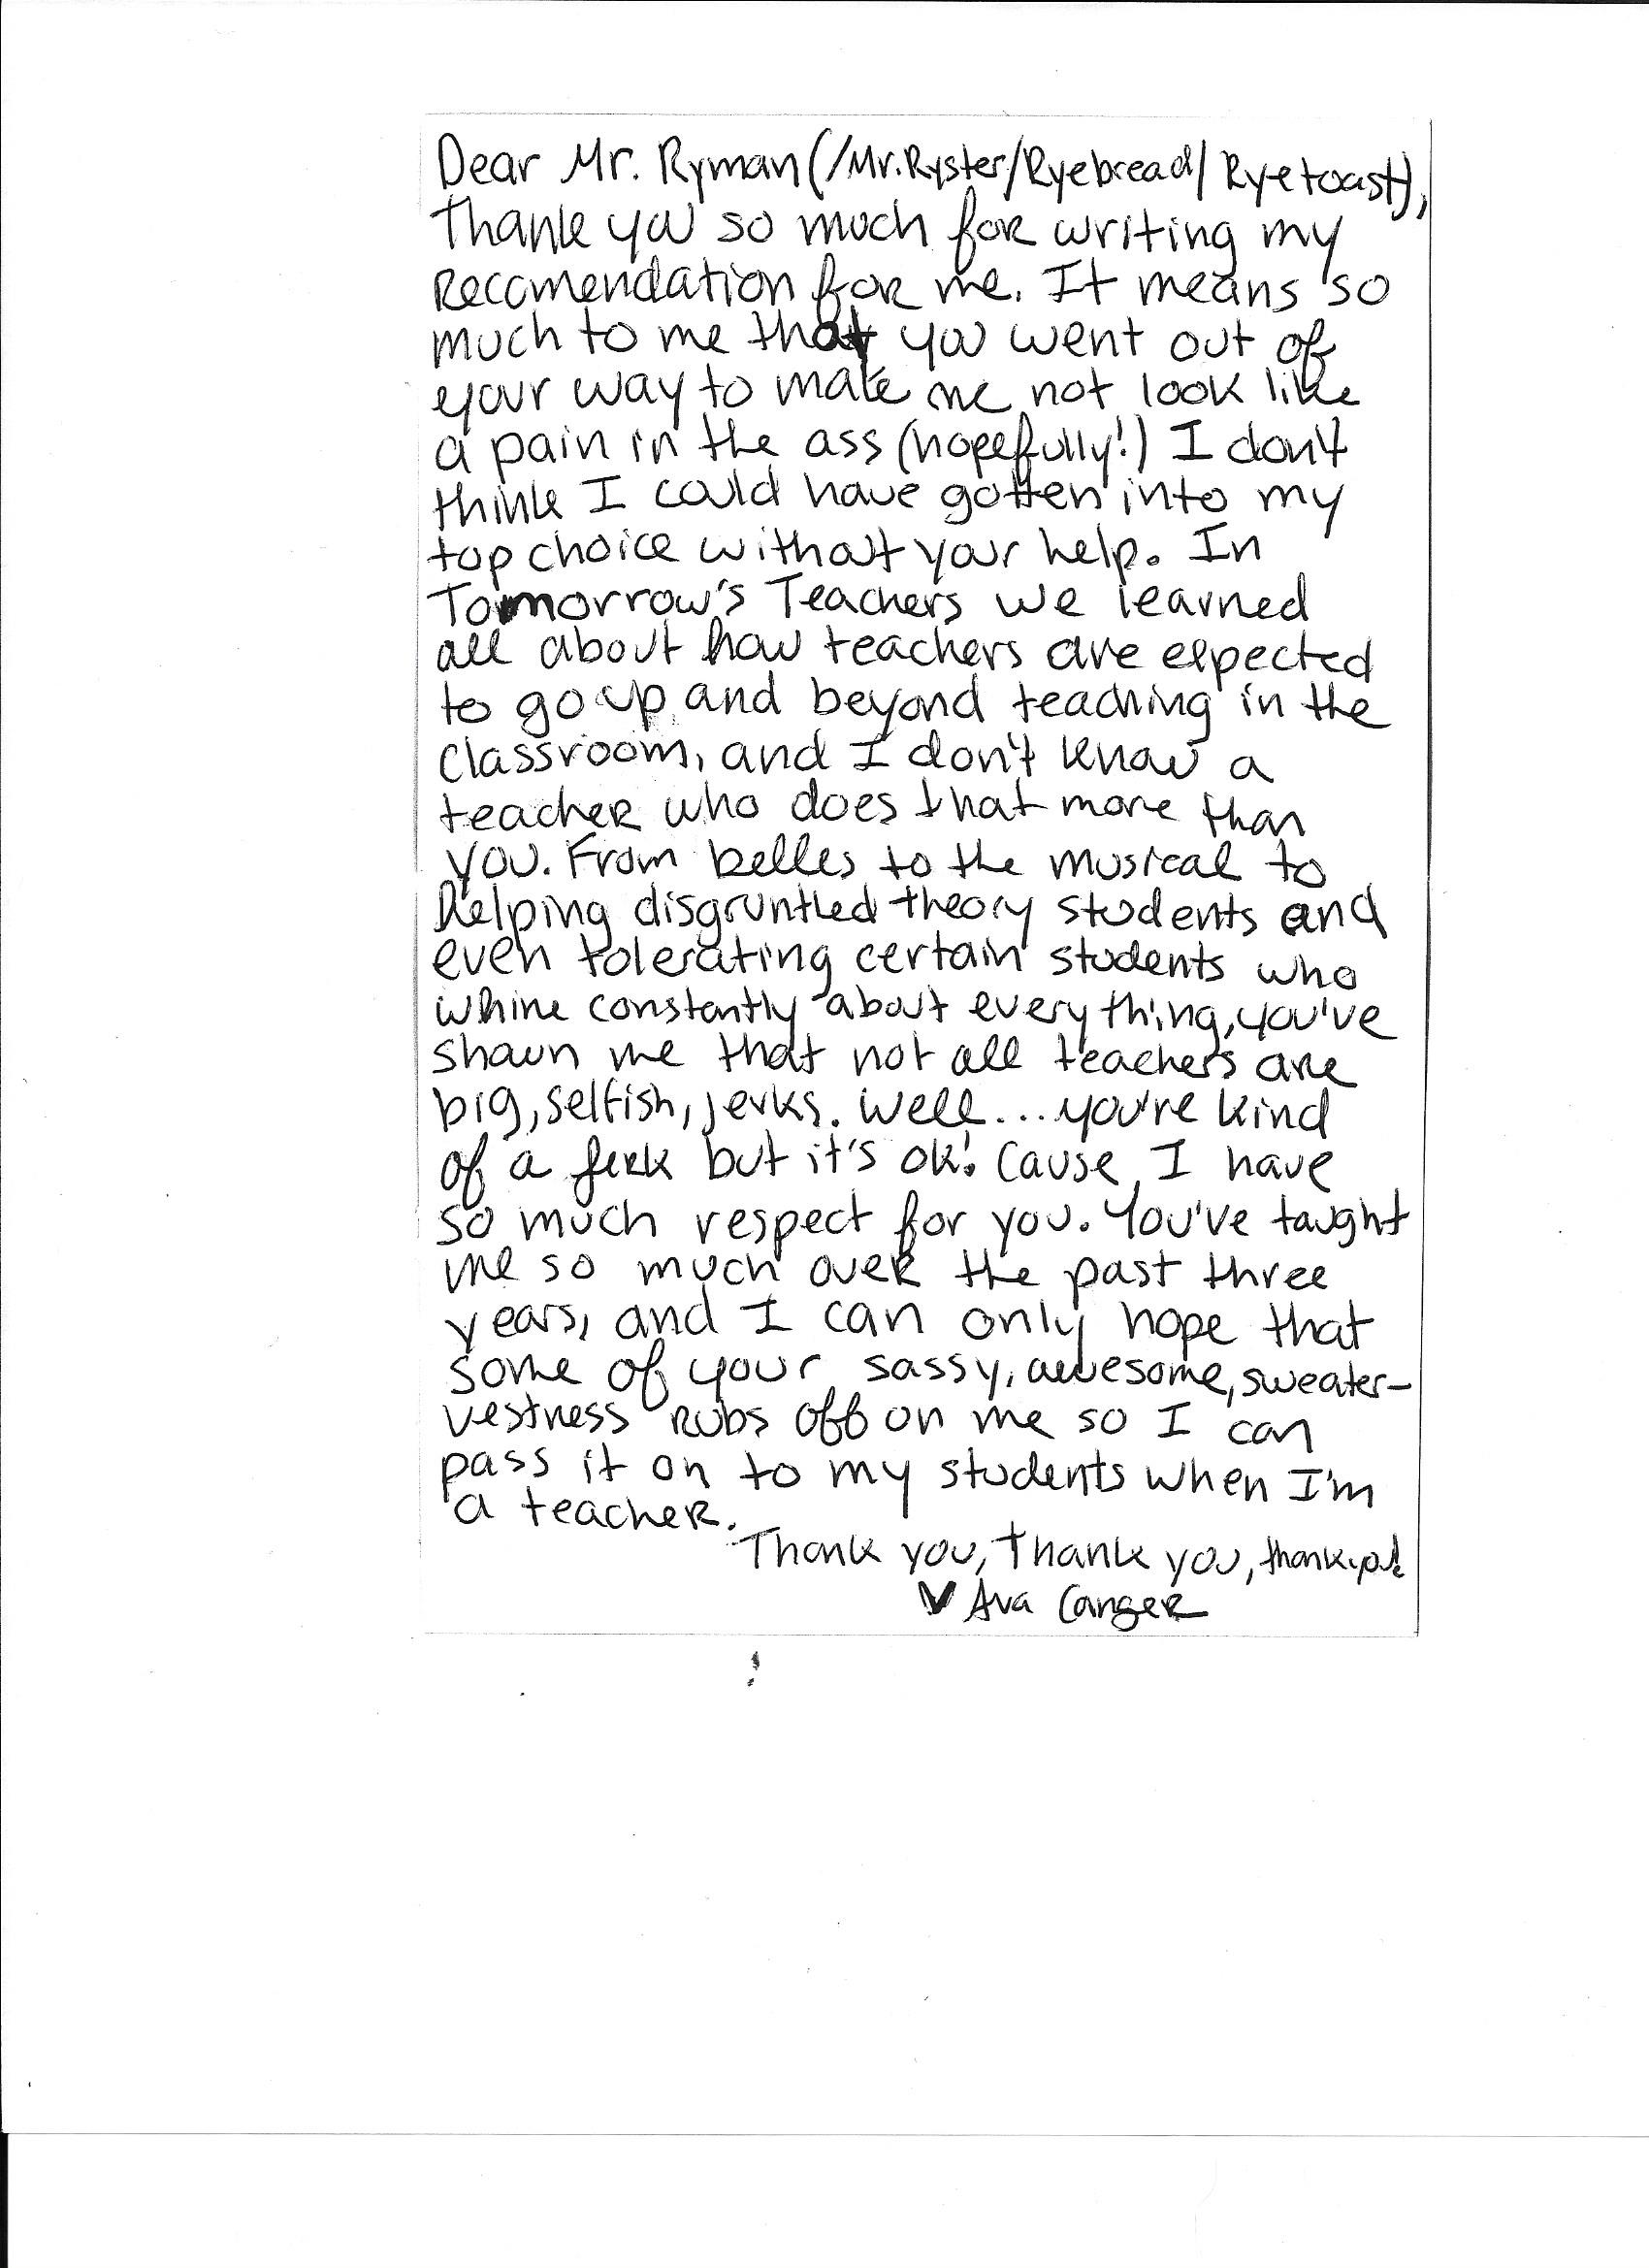 Dear Mr. Ryman (/Mr.Ryster/Ryebread/Ryetoast),
Thank you so much for writing my
recomendation for me. It means so
much to me that you went out of
your way to make me not look like
a pain in the ass (hopefully!) I don't
think I could have gotten into my
top choice without your help. In
Tomorrow's Teachers we learned
all about how teachers are expected
to go up and beyond teaching in the
classroom, and I don't know a
teacher who does that more than
you. From belles to the musical to
helping disgruntled theory students and
even tolerating certain students who
whine constantly about everything, you've
shown me that not all teachers are
big, selfish, jerks. Well... you're kind
of a jerk but it's ok! Cause I have
so much respect for you. You've taught
me so much over the past three
years, and I can only hope that
some of your sassy, awesome, sweater-
vestness rubs off on me so I can
pass it on to my students when I'm
a teacher.
Thank you, Thank you, thank you!
♥ Ava Canger